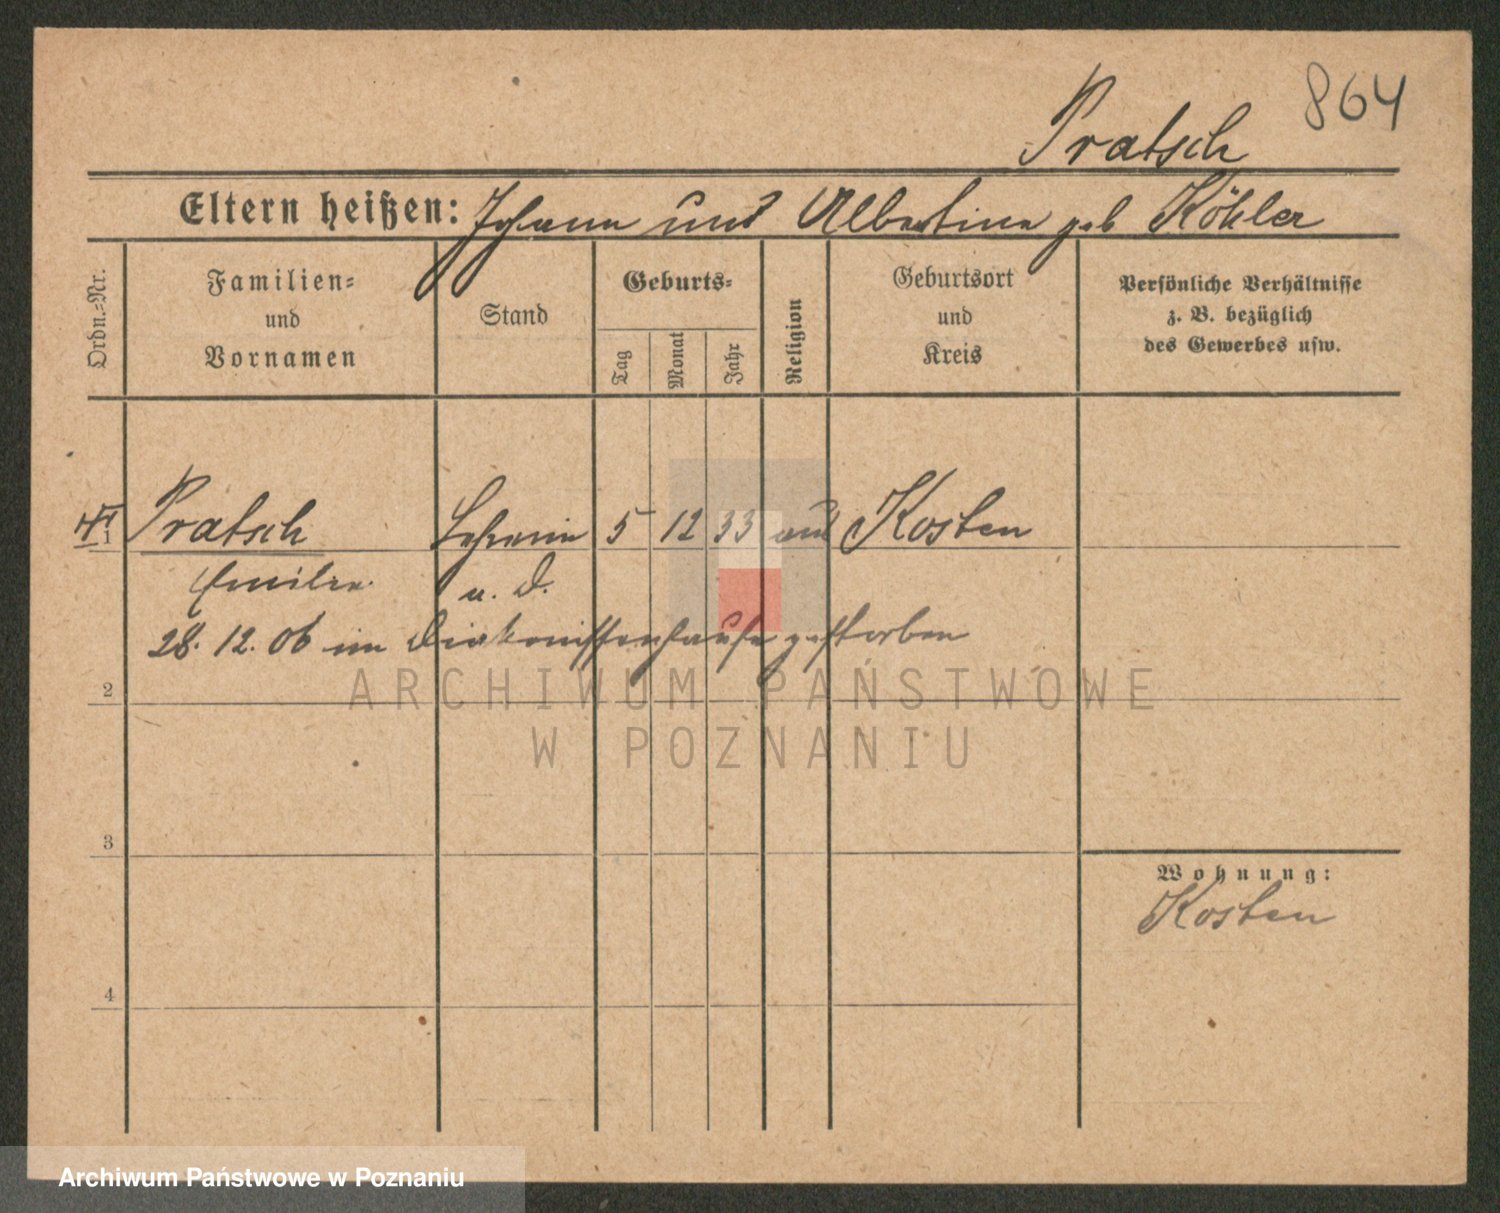 864
Pratsch
Eltern heißen: Johann und Albertine geb Köhler
Ordn.-Nr.
Familien-
und
Vornamen
Stand
Geburts-
Tag
Monat
Jahr
Religion
Geburtsort
und
Kreis
Persönliche Verhältnisse
z. B. bezüglich
des Gewerbes usw.
1 Pratsch Lehrerin 5 12 33 Kosten
Emilie u. D.
28. 12. 06 im Diakonissenhause gestorben
2
ARCHIWUM PAŃSTWOWE
W POZNANIU
3
Wohnung:
Kosten
4
Archiwum Państwowe w Poznaniu